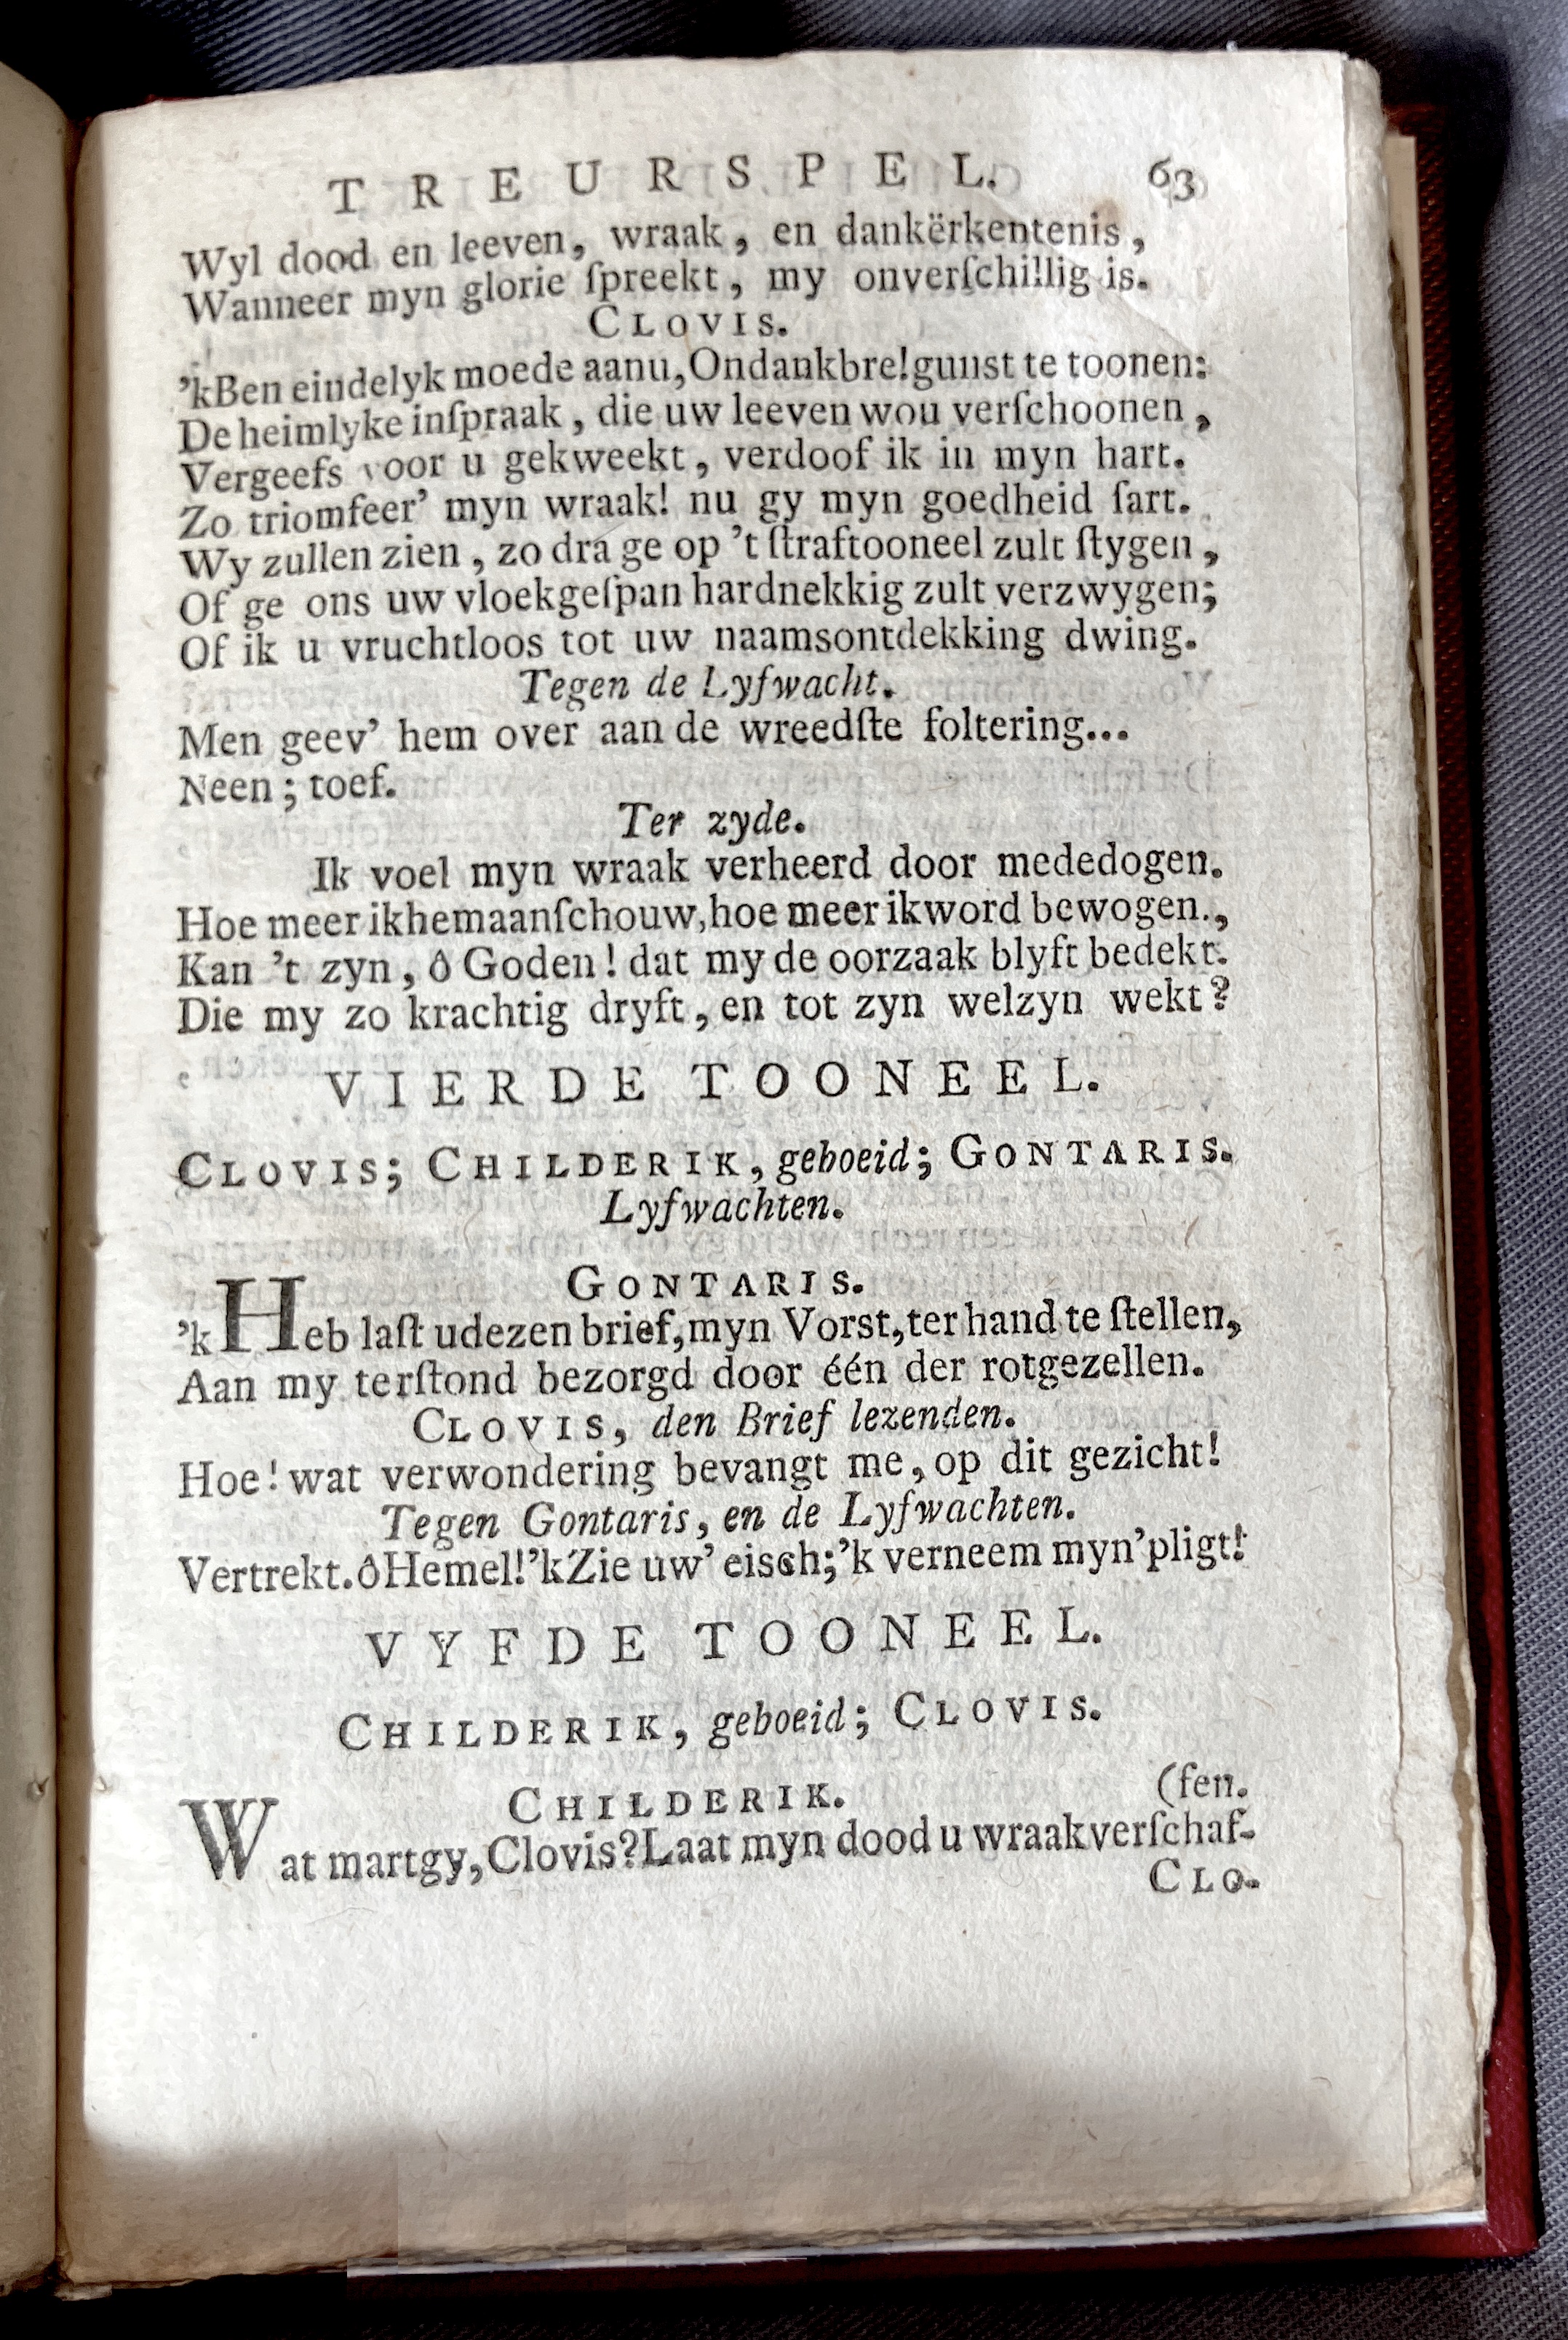 TREURSPEL. 63
Wyl dood en leeven, wraak, en dankërkentenis,
Wanneer myn glorie ſpreekt, my onverſchillig is.
CLOVIS.
'kBen eindelyk moede aanu, Ondankbre! gunst te toonen:
De heimlyke inſpraak, die uw leeven wou verſchoonen,
Vergeefs voor u gekweekt, verdoof ik in myn hart.
Zo triomfeer' myn wraak! nu gy myn goedheid ſart.
Wy zullen zien, zo dra ge op 't ſtraftooneel zult ſtygen,
Of ge ons uw vloekgeſpan hardnekkig zult verzwygen;
Of ik u vruchtloos tot uw naamsontdekking dwing.
Tegen de Lyfwacht.
Men geev' hem over aan de wreedſte foltering...
Neen; toef.
Ter zyde.
Ik voel myn wraak verheerd door mededogen.
Hoe meer ik hem aanſchouw, hoe meer ik word bewogen.,
Kan 't zyn, ô Goden! dat my de oorzaak blyft bedekt.
Die my zo krachtig dryft, en tot zyn welzyn wekt?
VIERDE TOONEEL.
CLOVIS; CHILDERIK, geboeid; GONTARIS.
Lyfwachten.
GONTARIS.
'k Heb laſt u dezen brief, myn Vorst, ter hand te ſtellen,
Aan my terſtond bezorgd door één der rotgezellen.
CLOVIS, den Brief lezenden.
Hoe! wat verwondering bevangt me, op dit gezicht!
Tegen Gontaris, en de Lyfwachten.
Vertrekt. ô Hemel! 'k Zie uw' eisch; 'k verneem myn' pligt!
VYFDE TOONEEL.
CHILDERIK, geboeid; CLOVIS.
CHILDERIK. (fen.
Wat martgy, Clovis? Laat myn dood u wraak verſchaf-
CLO-